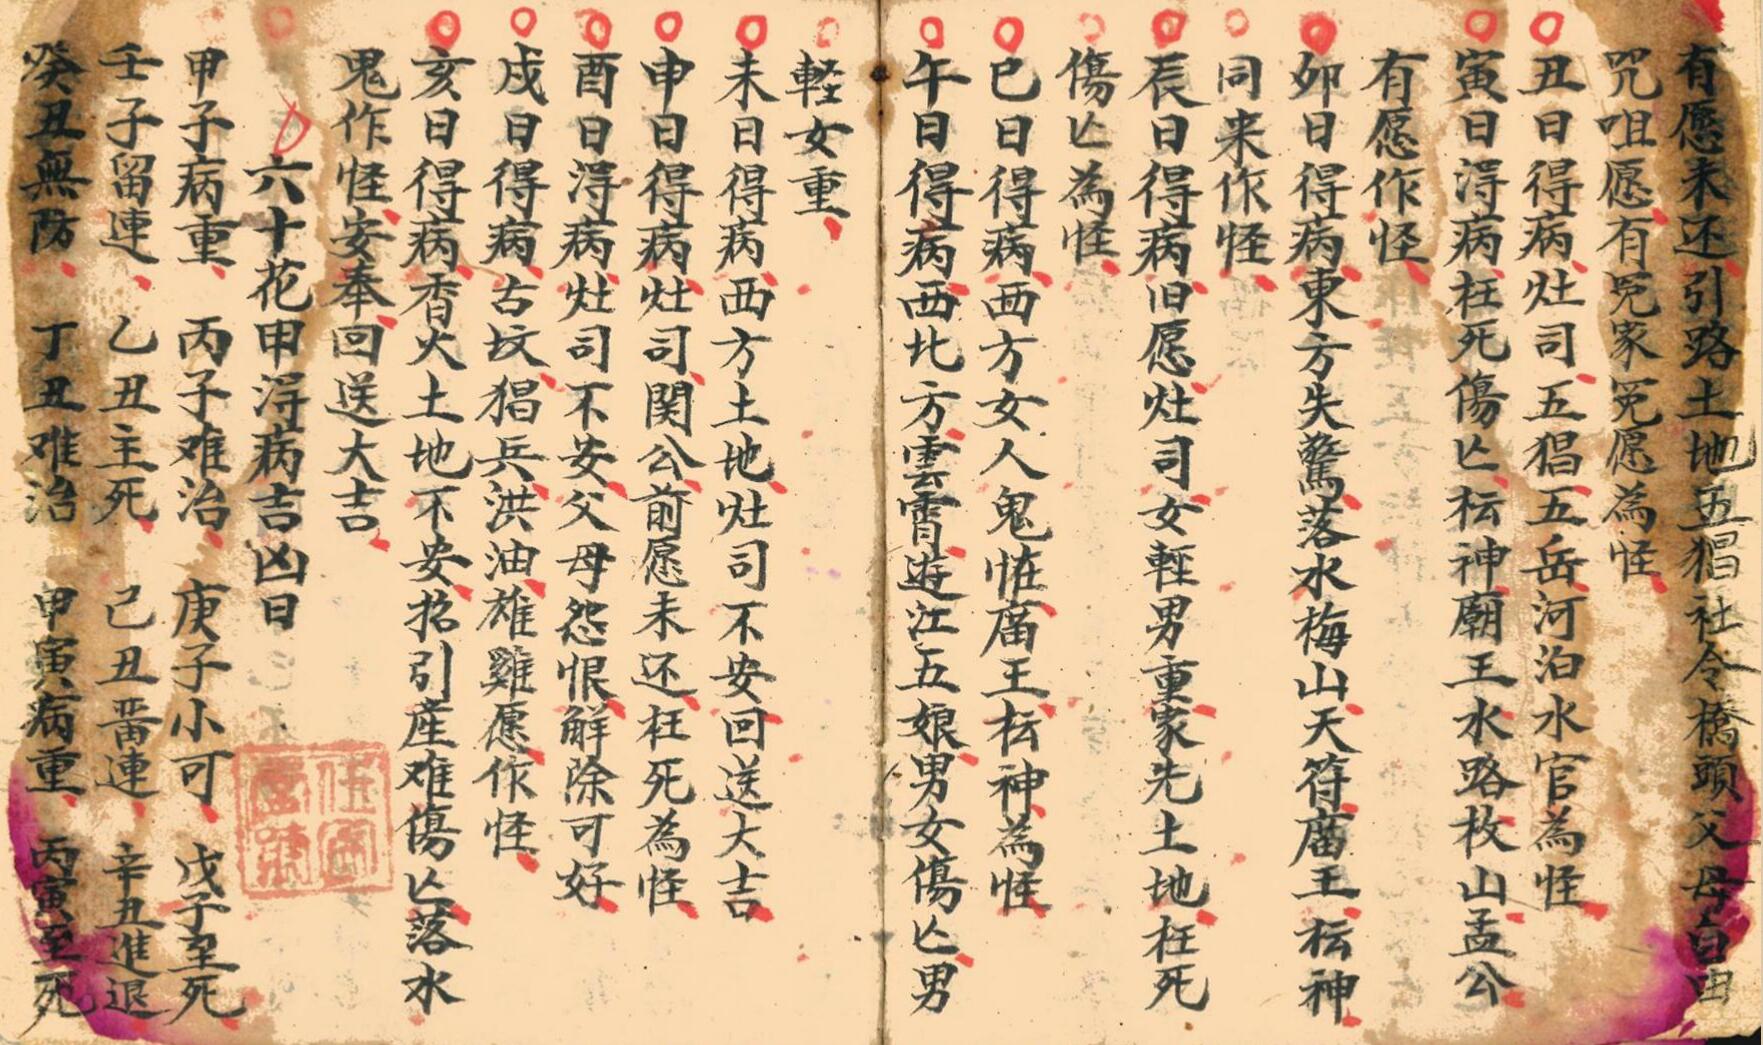 有愿未还引路土地五猖社令橋頭父母自由
咒咀愿有冤家冤愿為怪
丑日得病灶司五猖五岳河泊水官為怪
寅日淂病枉死傷亾枟神廟王水路枚山孟公
有愿作怪
夘日得病東方失驚落水梅山天符庙王枟神
同来作怪
辰日得病旧愿灶司女輕男重家先土地枉死
傷亾為怪
巳日得病西方女人鬼怪庙王枟神為怪
午日得病西北方雲霄遊江五娘男女傷亾男
輕女重
未日得病西方土地灶司不安回送大吉
申日得病灶司関公前愿未还枉死為怪
酉日淂病灶司不安父母怨恨解除可好
戍日得病古坟猖兵洪油雄雞愿作怪
亥日得病香火土地不安招引産难傷亾落水
鬼作怪安奉回送大吉
六十花甲淂病吉凶日
甲子病重 丙子难治 庚子小可 戊子至死
壬子留連 乙丑主死 己丑畱連 辛丑進退
癸丑無防 丁丑难治 甲寅病重 丙寅至死